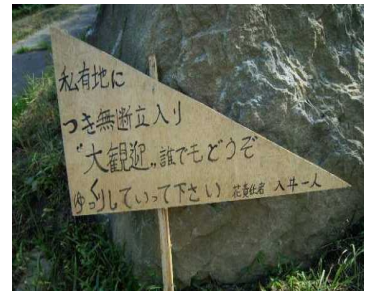 私有地に
つき無断立入り
"大観迎"誰でもどうぞ
ゆっくりしていって下さい 花責任者 入井一人